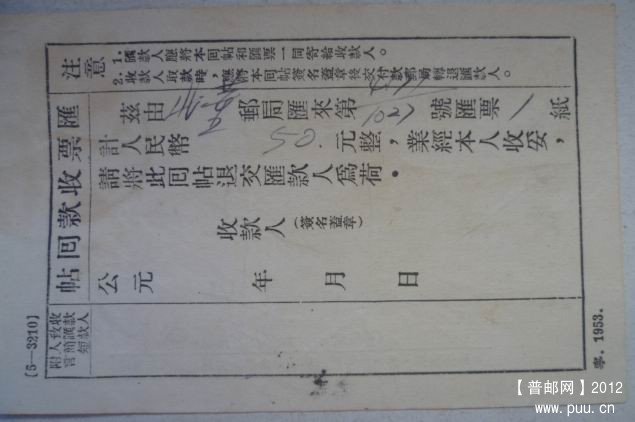 注意
1. 匯款人應將本回帖和匯票一同寄給收款人。
2. 收款人取款時,應將本回帖簽名蓋章後交付款郵局轉退匯款人。
匯票收款回帖
茲由 郵局匯來第 102 號匯票 / 紙
計人民幣 50. 元整,業經本人收妥,
請將此回帖退交匯款人爲荷。
收款人 (簽名蓋章)
公元 年 月 日
收款人
致匯款
人簡短
附言
[5—3210]
寧. 1953.
【普邮网】2012
www.puu.cn